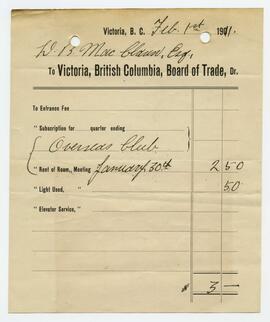 Victoria, B. C. Feb. 1st 1911.
W. B. Mac , Esq.,
To Victoria, British Columbia, Board of Trade, Dr.
To Entrance Fee
" Subscription for quarter ending
Overseas Club
" Rent of Room, Meeting January 30th 2 50
" Light Used, " 50
" Elevator Service, "
$ 3 —